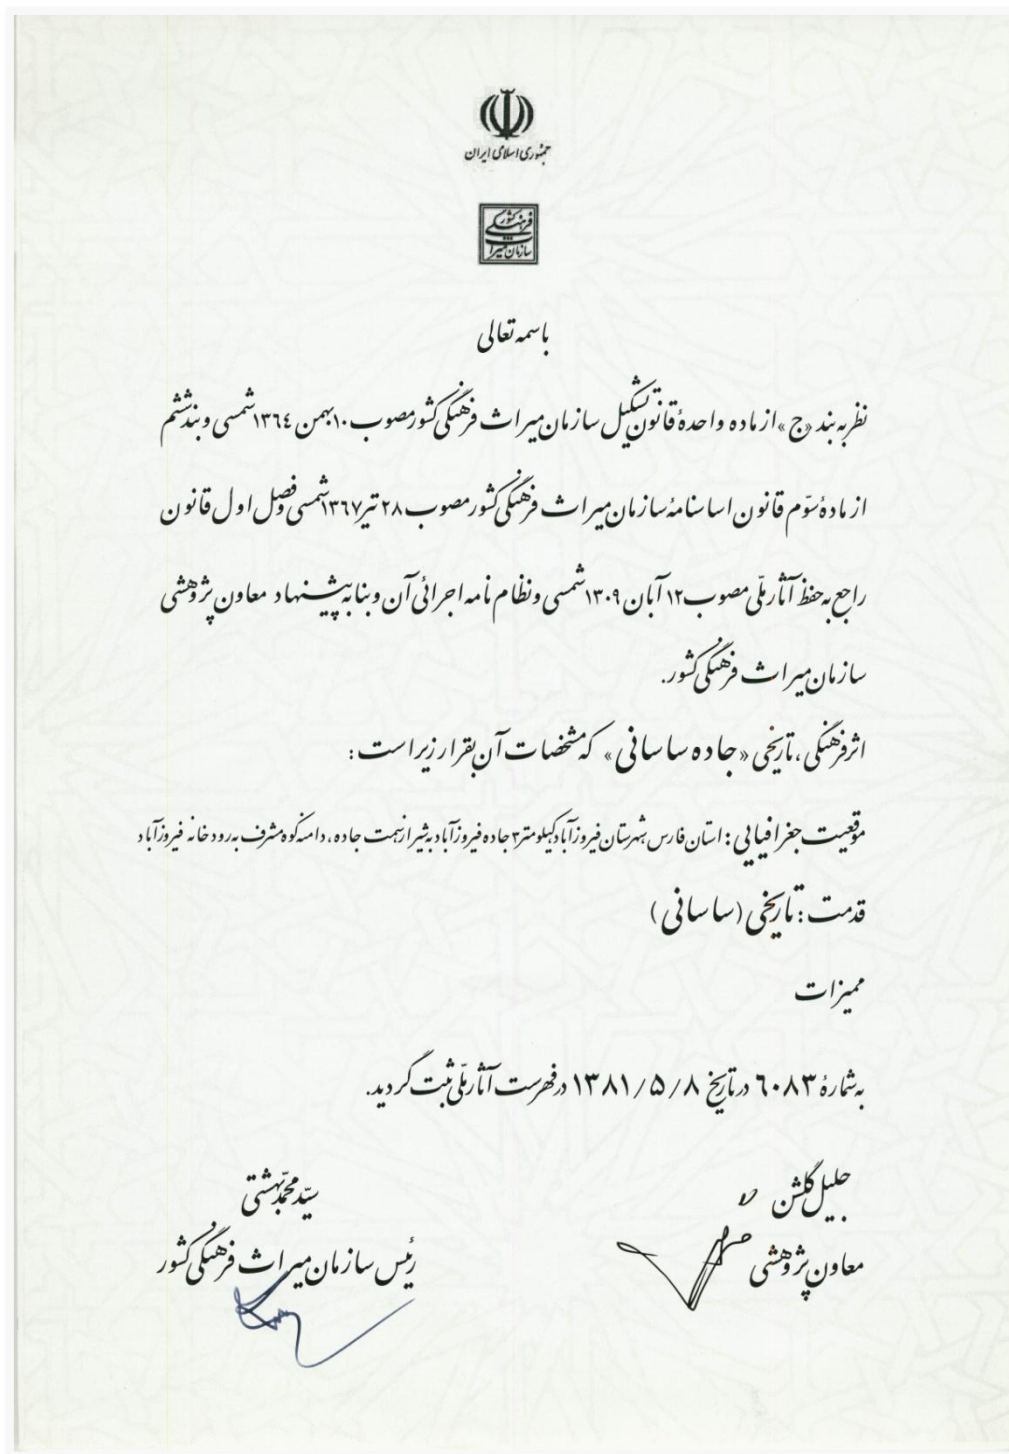 جمهوری اسلامی ایران
سازمان میراث فرهنگی کشور
باسمه تعالی
نظر به بند «ج» از ماده واحدهٔ قانون تشکیل سازمان میراث فرهنگی کشور مصوب ۱۰ بهمن ۱۳۶۴ شمسی و بند ششم
از مادهٔ سوّم قانون اساسنامهٔ سازمان میراث فرهنگی کشور مصوب ۲۸ تیر ۱۳۶۷ شمسی و فصل اول قانون
راجع به حفظ آثار ملّی مصوب ۱۲ آبان ۱۳۰۹ شمسی و نظام نامه اجرائی آن و بنا به پیشنهاد معاون پژوهشی
سازمان میراث فرهنگی کشور.
اثر فرهنگی، تاریخی «جاده ساسانی» که مشخصات آن بقرار زیر است :
موقعیت جغرافیایی : استان فارس، شهرستان فیروزآباد، کیلومتر ۳ جاده فیروزآباد به شیراز، سمت جاده، دامنه کوه مشرف به رودخانه فیروزآباد
قدمت : تاریخی (ساسانی)
ممیزات
به شمارهٔ ۶۰۸۳ در تاریخ ۱۳۸۱/۵/۸ در فهرست آثار ملّی ثبت گردید.
جلیل گلشن
معاون پژوهشی
سیّد محمّد بهشتی
رئیس سازمان میراث فرهنگی کشور